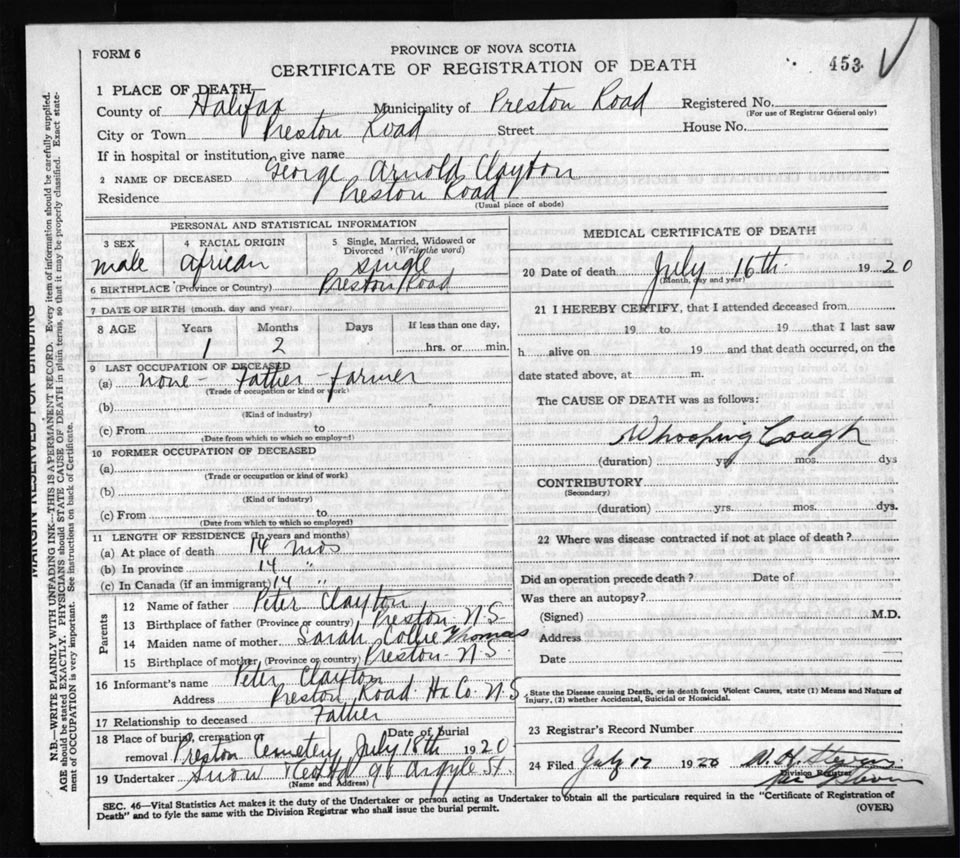 FORM 6
PROVINCE OF NOVA SCOTIA
CERTIFICATE OF REGISTRATION OF DEATH
453
1 PLACE OF DEATH
County of Halifax Municipality of Preston Road Registered No.
(For use of Registrar General only)
City or Town Preston Road Street House No.
If in hospital or institution, give name
2 NAME OF DECEASED George Arnold Clayton
Residence Preston Road
(Usual place of abode)
PERSONAL AND STATISTICAL INFORMATION
3 SEX 4 RACIAL ORIGIN 5 Single, Married, Widowed or Divorced (Write the word)
male african single
6 BIRTHPLACE (Province or Country) Preston Road
7 DATE OF BIRTH (month, day and year)
8 AGE Years Months Days If less than one day,
1 2 hrs. or min.
9 LAST OCCUPATION OF DECEASED
(a) none - Father - farmer
(Trade or occupation or kind of work)
(b)
(Kind of industry)
(c) From to
(Date from which to which so employed)
10 FORMER OCCUPATION OF DECEASED
(a)
(Trade or occupation or kind of work)
(b)
(Kind of industry)
(c) From to
(Date from which to which so employed)
11 LENGTH OF RESIDENCE (In years and months)
(a) At place of death 14 mos
(b) In province 14 "
(c) In Canada (if an immigrant) 14 "
Parents
12 Name of father Peter Clayton
13 Birthplace of father (Province or country) Preston N.S
14 Maiden name of mother Sarah Thomas
15 Birthplace of mother (Province or country) Preston N.S.
16 Informant's name Peter Clayton
Address Preston Road Hx Co N.S
17 Relationship to deceased Father
18 Place of burial, cremation or removal Preston Cemetery Date of burial July 18th 1920
19 Undertaker Snow & Co Ltd 90 Argyle St.
(Name and Address)
MEDICAL CERTIFICATE OF DEATH
20 Date of death July 16th 1920
(Month, day and year)
21 I HEREBY CERTIFY, that I attended deceased from
19 to 19 that I last saw
h alive on 19 and that death occurred, on the
date stated above, at m.
The CAUSE OF DEATH was as follows:
Whooping Cough
(duration) yrs. mos. dys
CONTRIBUTORY
(Secondary)
(duration) yrs. mos. dys.
22 Where was disease contracted if not at place of death?
Did an operation precede death? Date of
Was there an autopsy?
(Signed) M.D.
Address
Date
State the Disease causing Death, or in death from Violent Causes, state (1) Means and Nature of
Injury, (2) whether Accidental, Suicidal or Homicidal.
23 Registrar's Record Number
24 Filed July 17 1920 W. H. Stevens
Division Registrar
SEC. 46—Vital Statistics Act makes it the duty of the Undertaker or person acting as Undertaker to obtain all the particulars required in the "Certificate of Registration of
Death" and to fyle the same with the Division Registrar who shall issue the burial permit. (OVER)
MARGIN RESERVED FOR BINDING
N.B.—WRITE PLAINLY WITH UNFADING INK—THIS IS A PERMANENT RECORD. Every item of information should be carefully supplied.
AGE should be stated EXACTLY. PHYSICIANS should STATE CAUSE OF DEATH in plain terms, so that it may be properly classified. Exact state-
ment of OCCUPATION is very important. See instructions on back of Certificate.